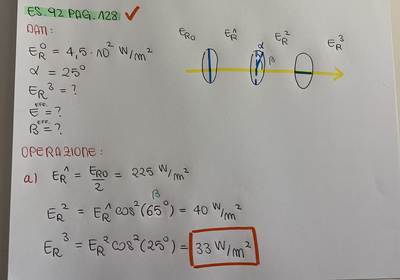 ES. 92 PAG. 128.
DATI:
E_R^0 = 4,5 · 10^2 W/m^2
α = 25°
E_R^3 = ?
E^eff. = ?
B^eff. = ?
E_R0 E_R^1 E_R^2 E_R^3
α
β
OPERAZIONE:
a) E_R^1 = E_R0/2 = 225 W/m^2
β
E_R^2 = E_R^1 cos^2(65°) = 40 W/m^2
E_R^3 = E_R^2 cos^2(25°) = 33 W/m^2